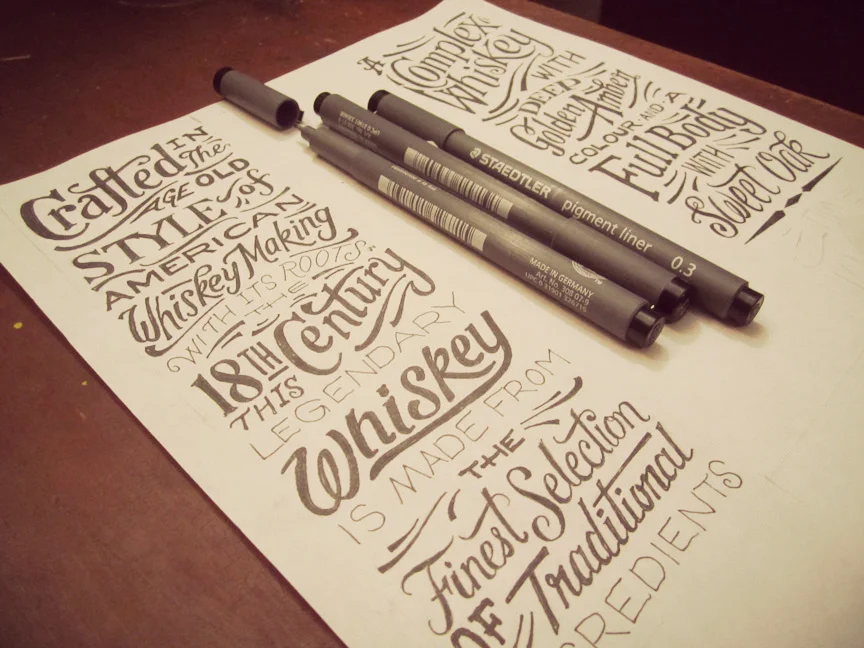 Crafted IN
The
AGE OLD
STYLE of
AMERICAN
Whiskey Making
WITH ITS ROOTS
IN THE
18TH Century
THIS
LEGENDARY
Whiskey
IS MADE FROM
THE
Finest Selection
OF Traditional
GREDIENTS
A
Complex
Whiskey
WITH
DEEP
Golden Amber
COLOUR AND A
Full Body
WITH
Sweet Oak
STAEDTLER pigment liner 0.3
MADE IN GERMANY